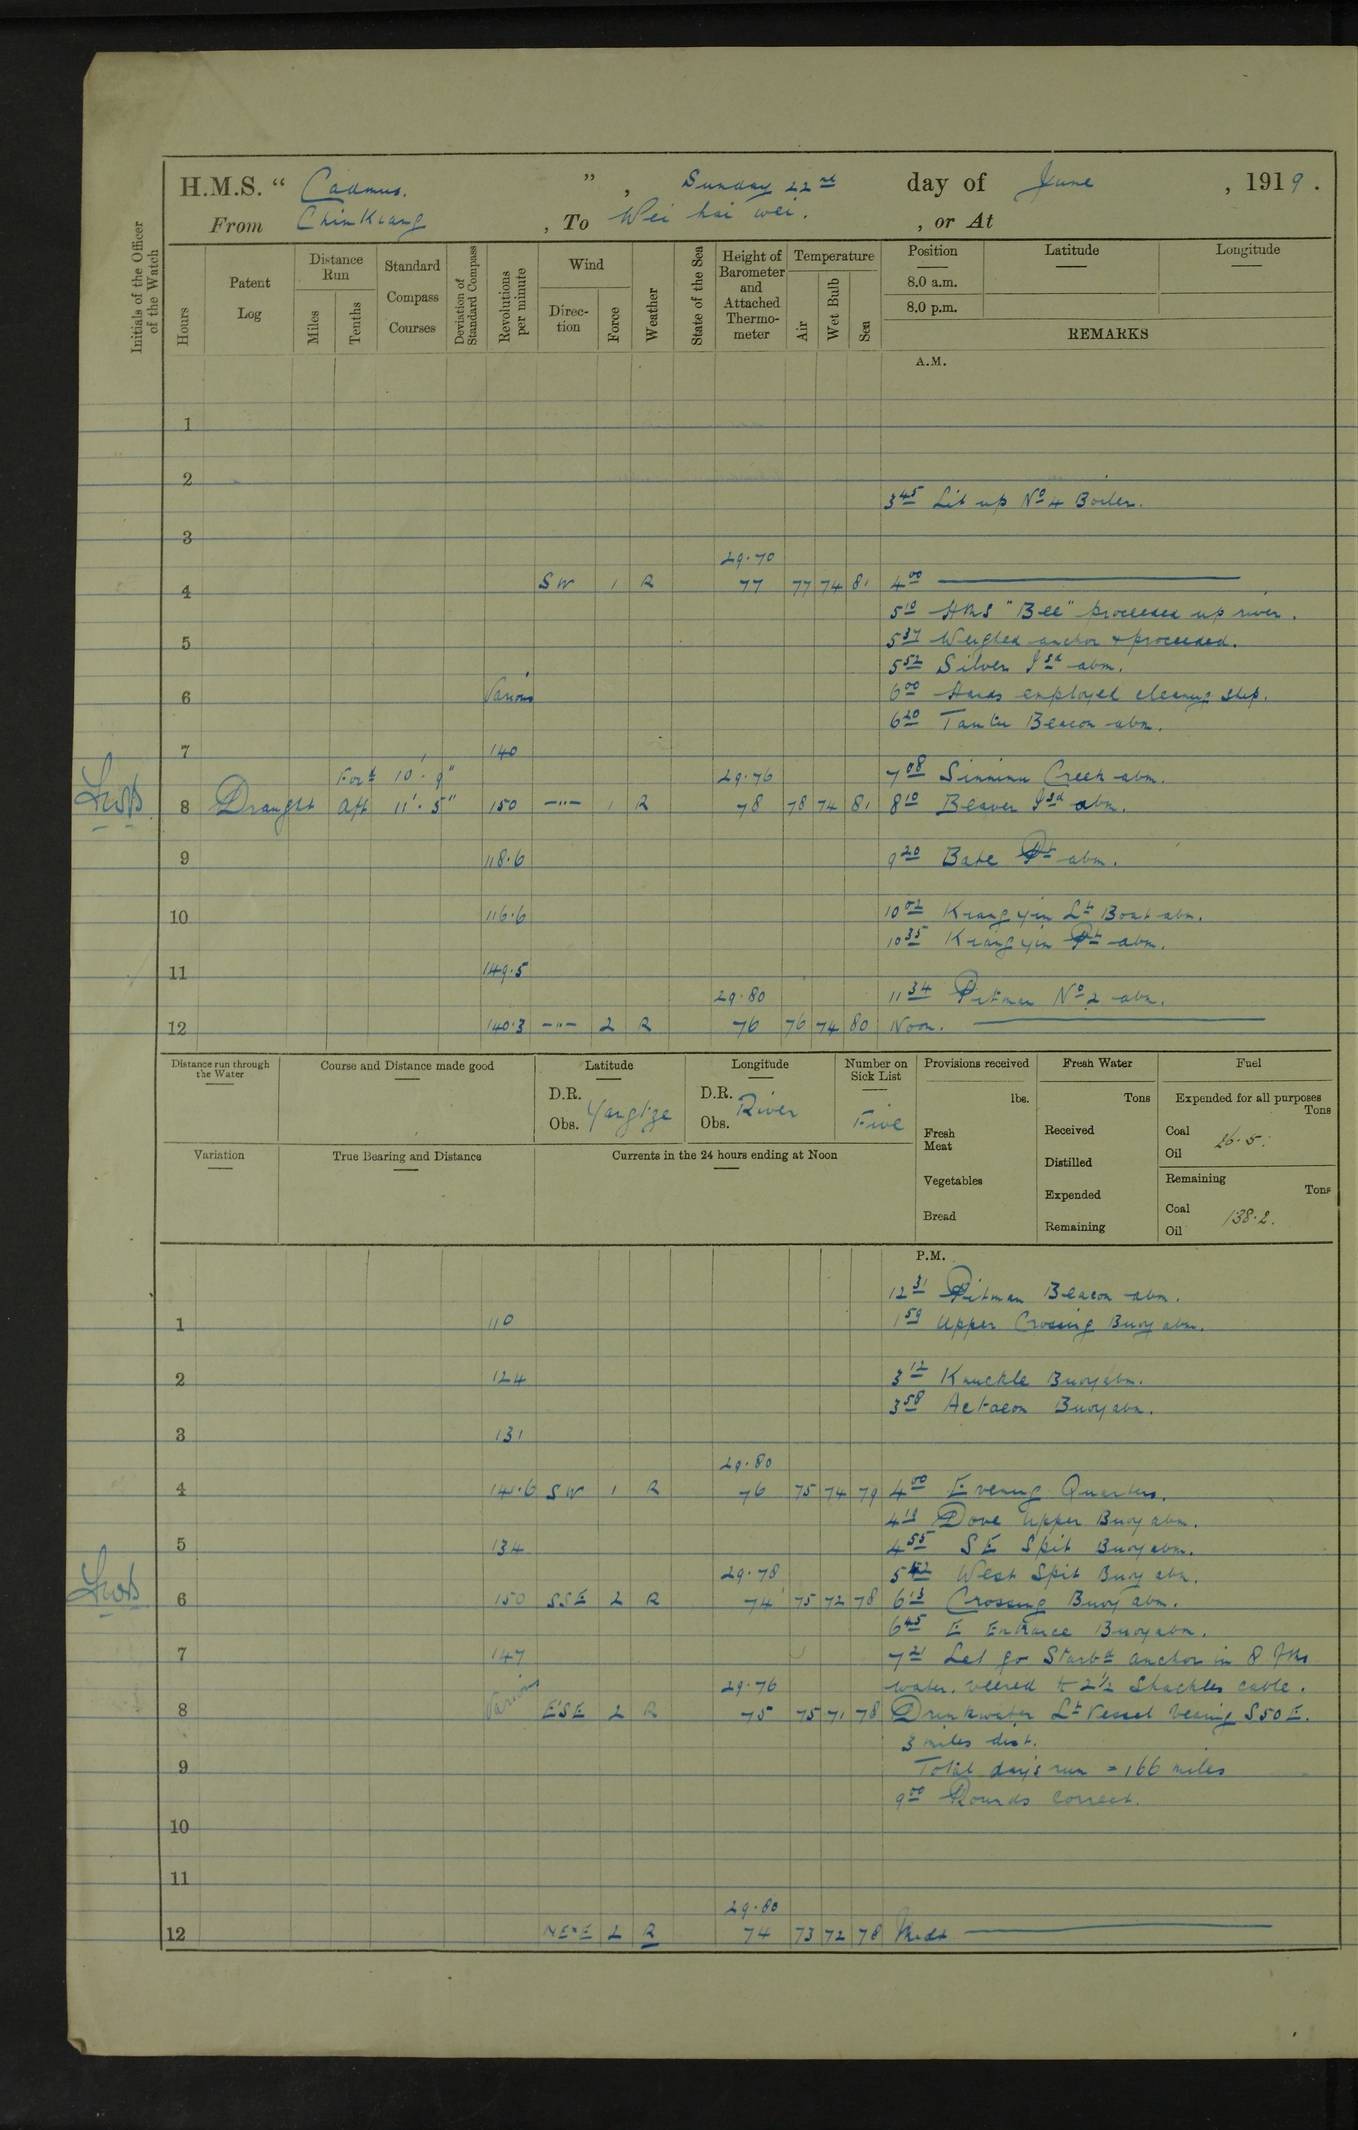 H.M.S. “ Cadmus. ” , Sunday 22nd day of June , 1919.
From Chinkiang , To Wei hai wei. , or At
Initials of the Officer of the Watch
Hours
Patent Log
Distance Run
Miles
Tenths
Standard Compass Courses
Deviation of Standard Compass
Revolutions per minute
Wind
Direction
Force
Weather
State of the Sea
Height of Barometer and Attached Thermometer
Temperature
Air
Wet Bulb
Sea
Position
8.0 a.m.
8.0 p.m.
Latitude
Longitude
REMARKS
A.M.
1
2
3 45 Lit up No 4 Boiler.
3
29.70
4 SW 1 R 77 77 74 81 4 00
5 10 HMS "Bee" proceeded up river.
5 5 37 Weighed anchor & proceeded.
5 52 Silver Isd abm.
6 Various 6 00 Hands employed cleaning ship.
6 20 Tantu Beacon abm.
7 140
Ford 10' . 9" 29.76 7 08 Sinminu Creek abm.
8 Draught Aft 11' . 5" 150 -"- 1 R 78 78 74 81 8 10 Beaver Isd abm.
9 118.6 9 20 Bate Pt abm.
10 116.6 10 02 Kiangyin Lt Boat abm.
10 35 Kiangyin Pt abm.
11 149.5
29.80 11 34 Pitman No 2 abm.
12 140.3 -"- 2 R 76 76 74 80 Noon.
Distance run through the Water
Course and Distance made good
Latitude
D.R.
Obs. Yangtze
Longitude
D.R. River
Obs.
Number on Sick List
Five
Provisions received
lbs.
Fresh Meat
Vegetables
Bread
Fresh Water
Tons
Received
Distilled
Expended
Remaining
Fuel
Expended for all purposes
Tons
Coal 26.5.
Oil
Remaining
Tons
Coal 138.2.
Oil
Variation
True Bearing and Distance
Currents in the 24 hours ending at Noon
P.M.
12 31 Pitman Beacon abm.
1 110 1 59 Upper Crossing Buoy abm.
2 124 3 12 Knuckle Buoy abm.
3 58 Actaeon Buoy abm.
3 131
29.80
4 141.6 SW 1 R 76 75 74 79 4 00 Evening Quarters.
4 13 Dove Upper Buoy abm.
5 134 4 55 SE Spit Buoy abm.
29.78 West Spit Buoy abm.
6 150 SSE 2 R 74 75 72 78 6 13 Crossing Buoy abm.
6 45 E Entrance Buoy abm.
7 147 7 21 Let go Starbd anchor in 8 fms
29.76 water. veered to 2½ Shackles cable.
8 Various ESE 2 R 75 75 71 78 Drinkwater Lt Vessel bearing S50E.
3 miles dist.
9 Total days run = 166 miles
9 00 Rounds correct.
10
11
29.80
12 NE×E 2 R 74 73 72 78 Midt